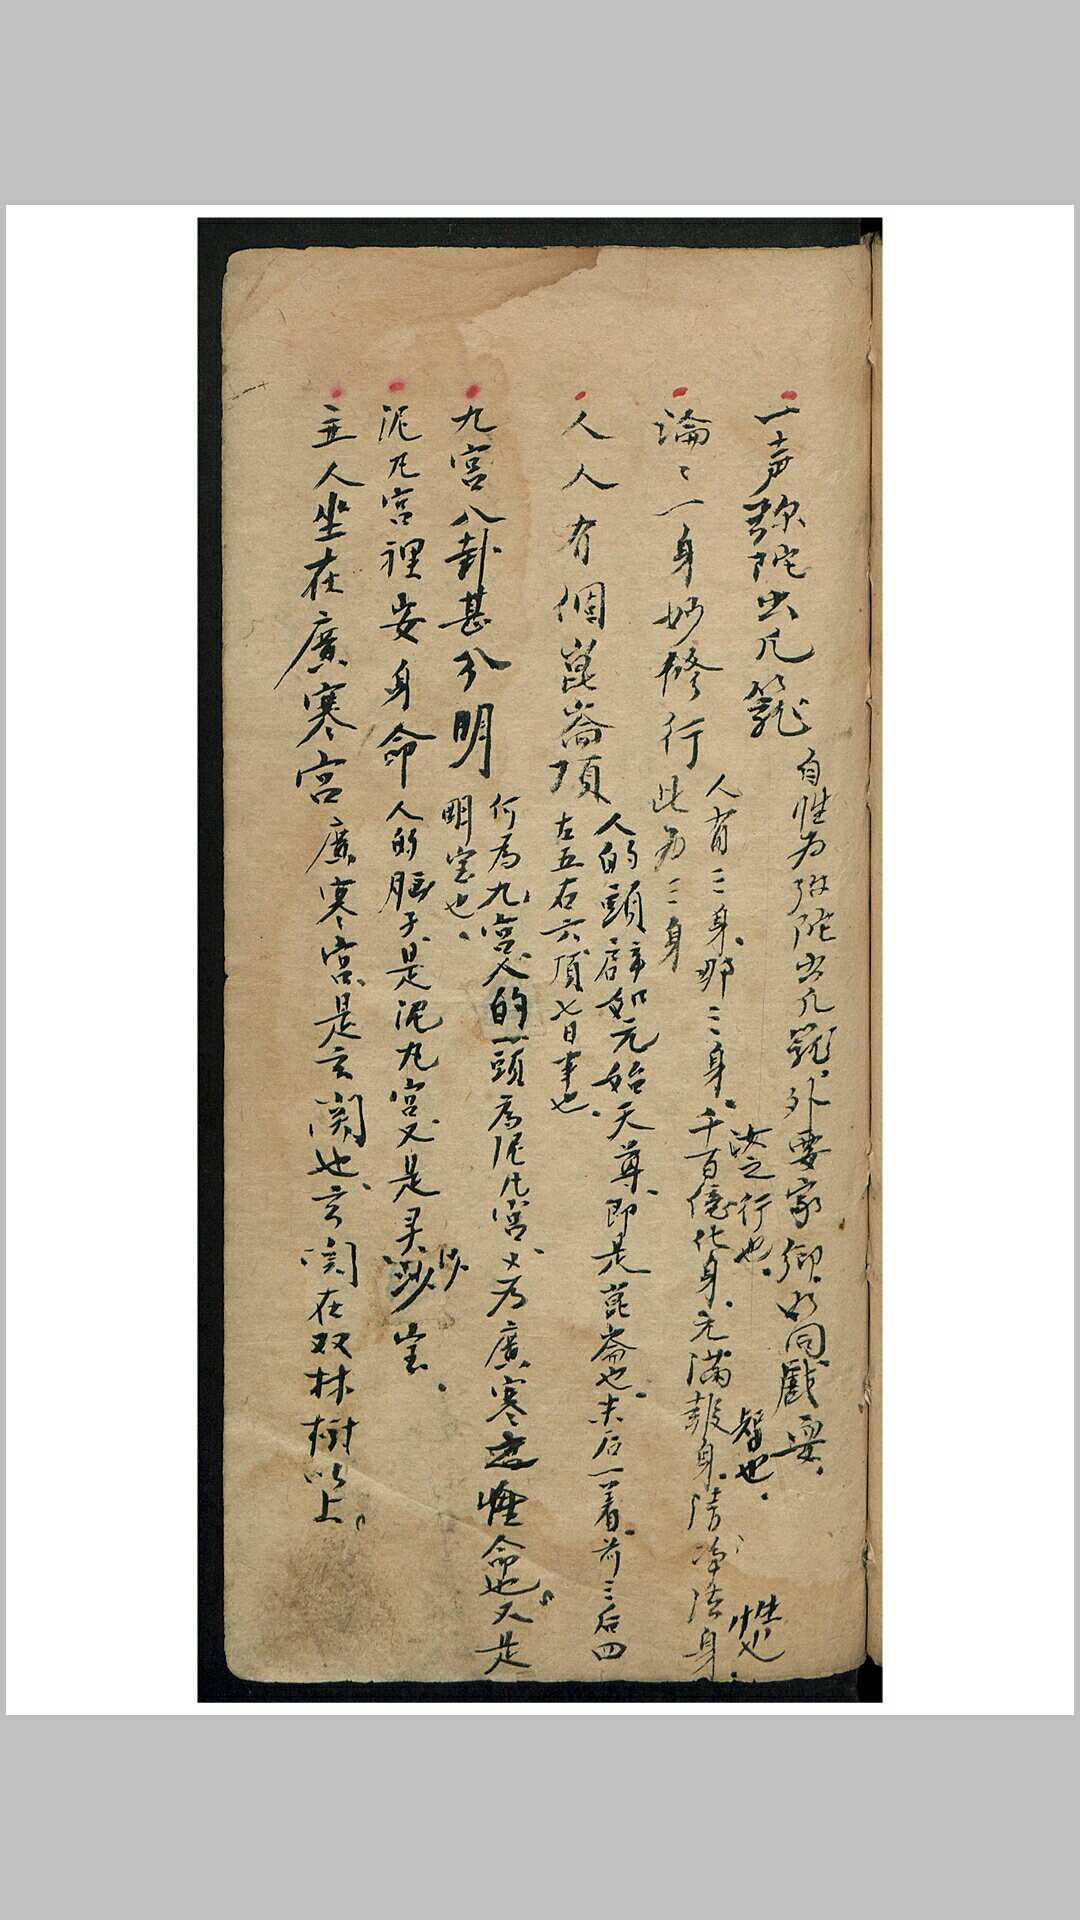 一声弥陀出凡籠
自性为弥陀出凡籠外要家鄉如同戲耍
論々一身妙修行
人有三身那三身千百億化身元满報身清净法身
汝之行也
智也
性也
此为三身
人人有個崑崙頂
人的頭辟如元始天尊即是崑崙也末后一着前三后四
左五右六頂七日事也
九宫八卦甚分明
何為九宫人的頭為泥凡宫又为廣寒性命也又是
明室也
泥凡宫裡安身命
人的脑子是泥丸宫又是灵沙室
主人坐在廣寒宫
廣寒宫是玄関也玄関在双林樹以上